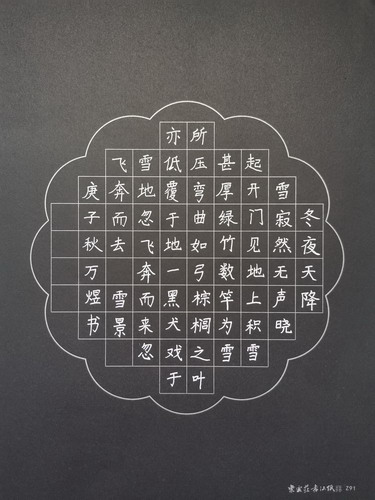 冬夜天降
雪寂然无声晓
起开门见地上积雪
甚厚绿竹数竿为雪
所压弯曲如弓棕榈之叶
亦低覆于地一黑犬戏于
雪地忽飞奔而来忽
飞奔而去 雪景
庚子秋万煜书
291